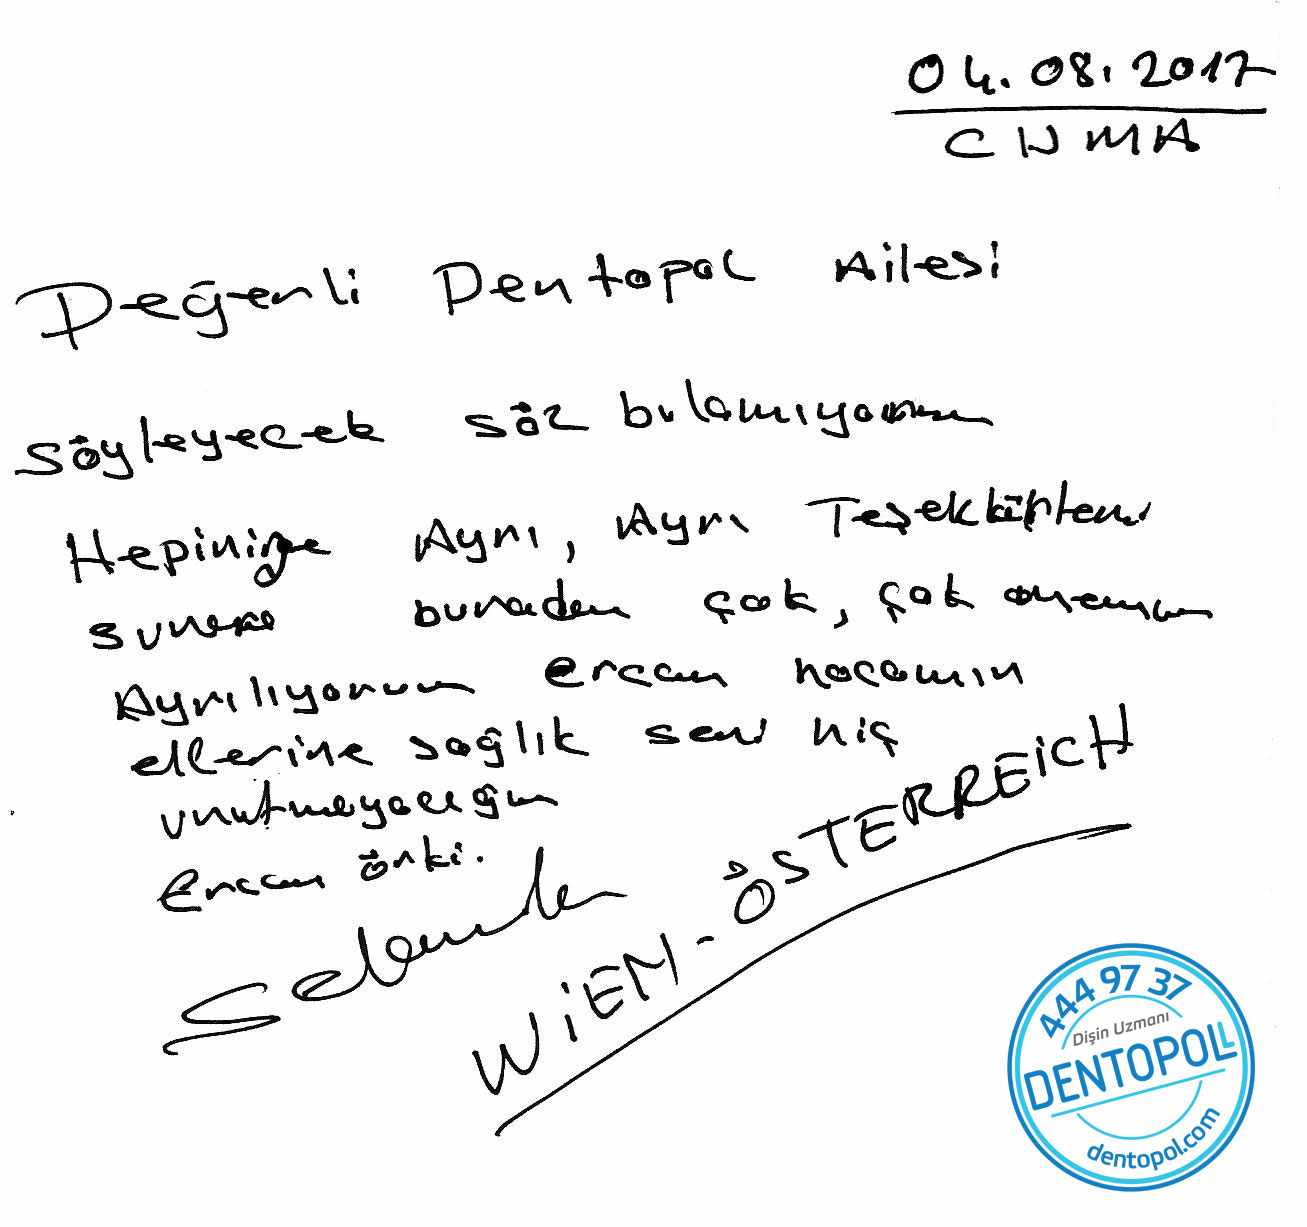 04.08.2017
CUMA
Değerli Dentopol Ailesi
söyleyecek söz bulamıyorum
Hepinize Ayrı, Ayrı Teşekkürleri
sunara buradan çok, çok
Ayrılıyorum ercan hocamın
ellerine sağlık seni hiç
unutmayacağım
Ercan
WiEN-ÖSTERREiCH
444 97 37
Dişin Uzmanı
DENTOPOL
dentopol.com